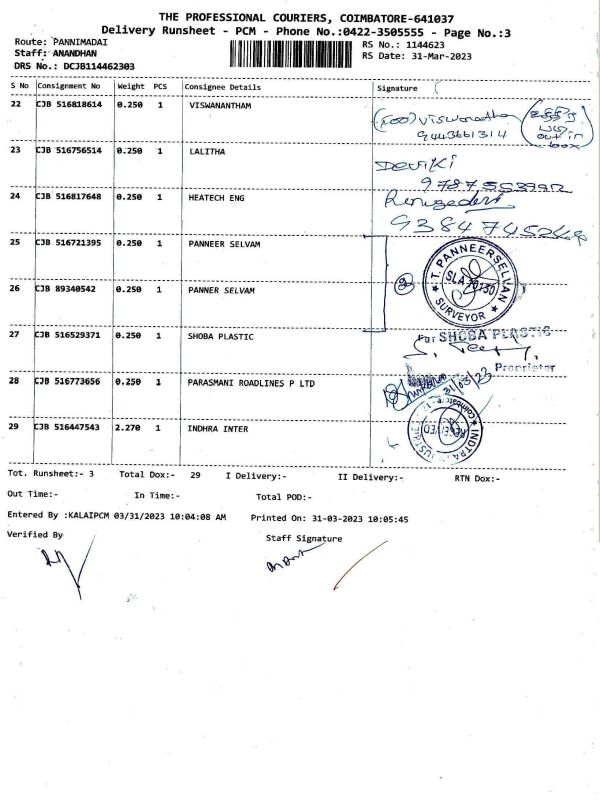 THE PROFESSIONAL COURIERS, COIMBATORE-641037
Delivery Runsheet - PCM - Phone No.:0422-3505555 - Page No.:3
Route: PANNIMADAI
RS No.: 1144623
Staff: ANANDHAN
RS Date: 31-Mar-2023
DRS No.: DCJB114462303
S No Consignment No Weight PCS Consignee Details Signature
22 CJB 516818614 0.250 1 VISWANANTHAM
viswanatha
9443661314
out in
box
23 CJB 516756514 0.250 1 LALITHA
Deviki
24 CJB 516817648 0.250 1 HEATECH ENG
25 CJB 516721395 0.250 1 PANNEER SELVAM
T. PANNEERSELVAN
SURVEYOR
26 CJB 89340542 0.250 1 PANNER SELVAM
27 CJB 516529371 0.250 1 SHOBA PLASTIC
For SHOBA PLASTIC
Proprietor
28 CJB 516773656 0.250 1 PARASMANI ROADLINES P LTD
31/03/23
29 CJB 516447543 2.270 1 INDHRA INTER
RECEIVED
Tot. Runsheet:- 3 Total Dox:- 29 I Delivery:- II Delivery:- RTN Dox:-
Out Time:- In Time:- Total POD:-
Entered By :KALAIPCM 03/31/2023 10:04:08 AM Printed On: 31-03-2023 10:05:45
Verified By Staff Signature